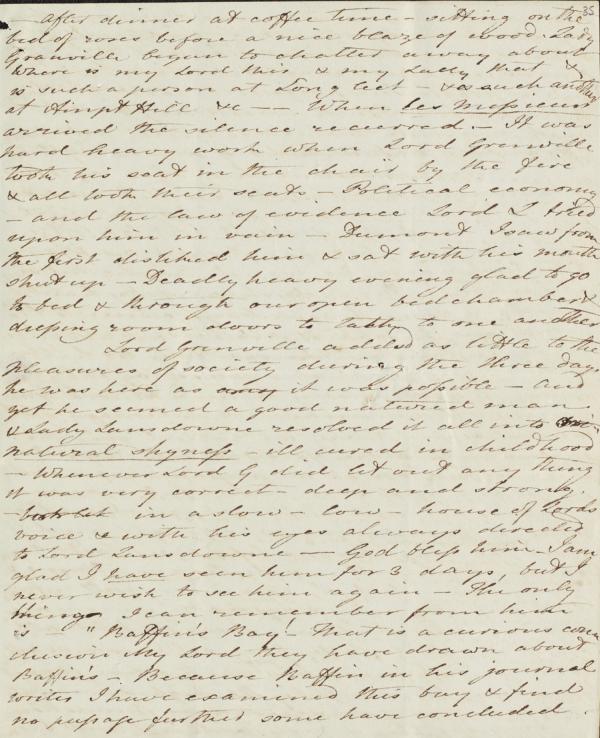 35
– after dinner at coffee time – sitting on the
bed of roses before a nice blaze of wood. Lady
Granville began to chatter away about
where is my Lord this & my Lady that &
is such a person at Long leet – & is such another
at Ampt Hill &c – – When les Messieurs
arrived the silence recurred. – It was
hard heavy work when Lord Grenville
took his seat in the chair by the fire
& all took their seats – Political economy
– and the law of evidence Lord L tried
upon him in vain – Dumont I saw from
the first disliked him & sat with his mouth
shut up – Deadly heavy evening glad to go
to bed & through our open bedchamber &
dressing room doors to talk to one another
Lord Grenville added as little to the
pleasures of society during the three days
he was here as it was possible – and
yet he seemed a good natured man
& Lady Lansdowne resolved it all into
natural shyness – ill cured in childhood
– Whenever Lord G did let out any thing
it was very correct – deep and strong.
in a slow – low – house of Lords
voice & with his eyes always directed
to Lord Lansdowne — God bless him – I am
glad I have seen him for 3 days, but I
never wish to see him again – The only
thing I can remember from him
is – "Baffin's Bay! – That is a curious con
clusion My Lord they have drawn about
Baffin's – Because Baffin in his journal
writes I have examined this bay & find
no passage further some have concluded